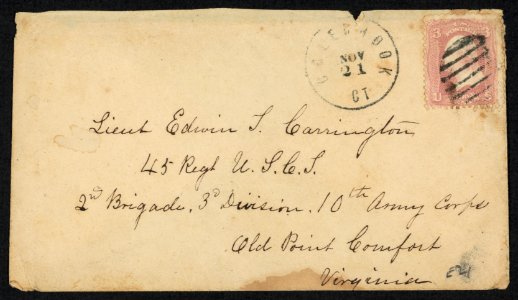 COLEBROOK
NOV
21
CT
3 3
POSTAGE
U S
Lieut Edwin S. Carrington
45 Regt U.S.C.S.
2nd Brigade, 3d Division, 10th Army Corps
Old Point Comfort
Virginia